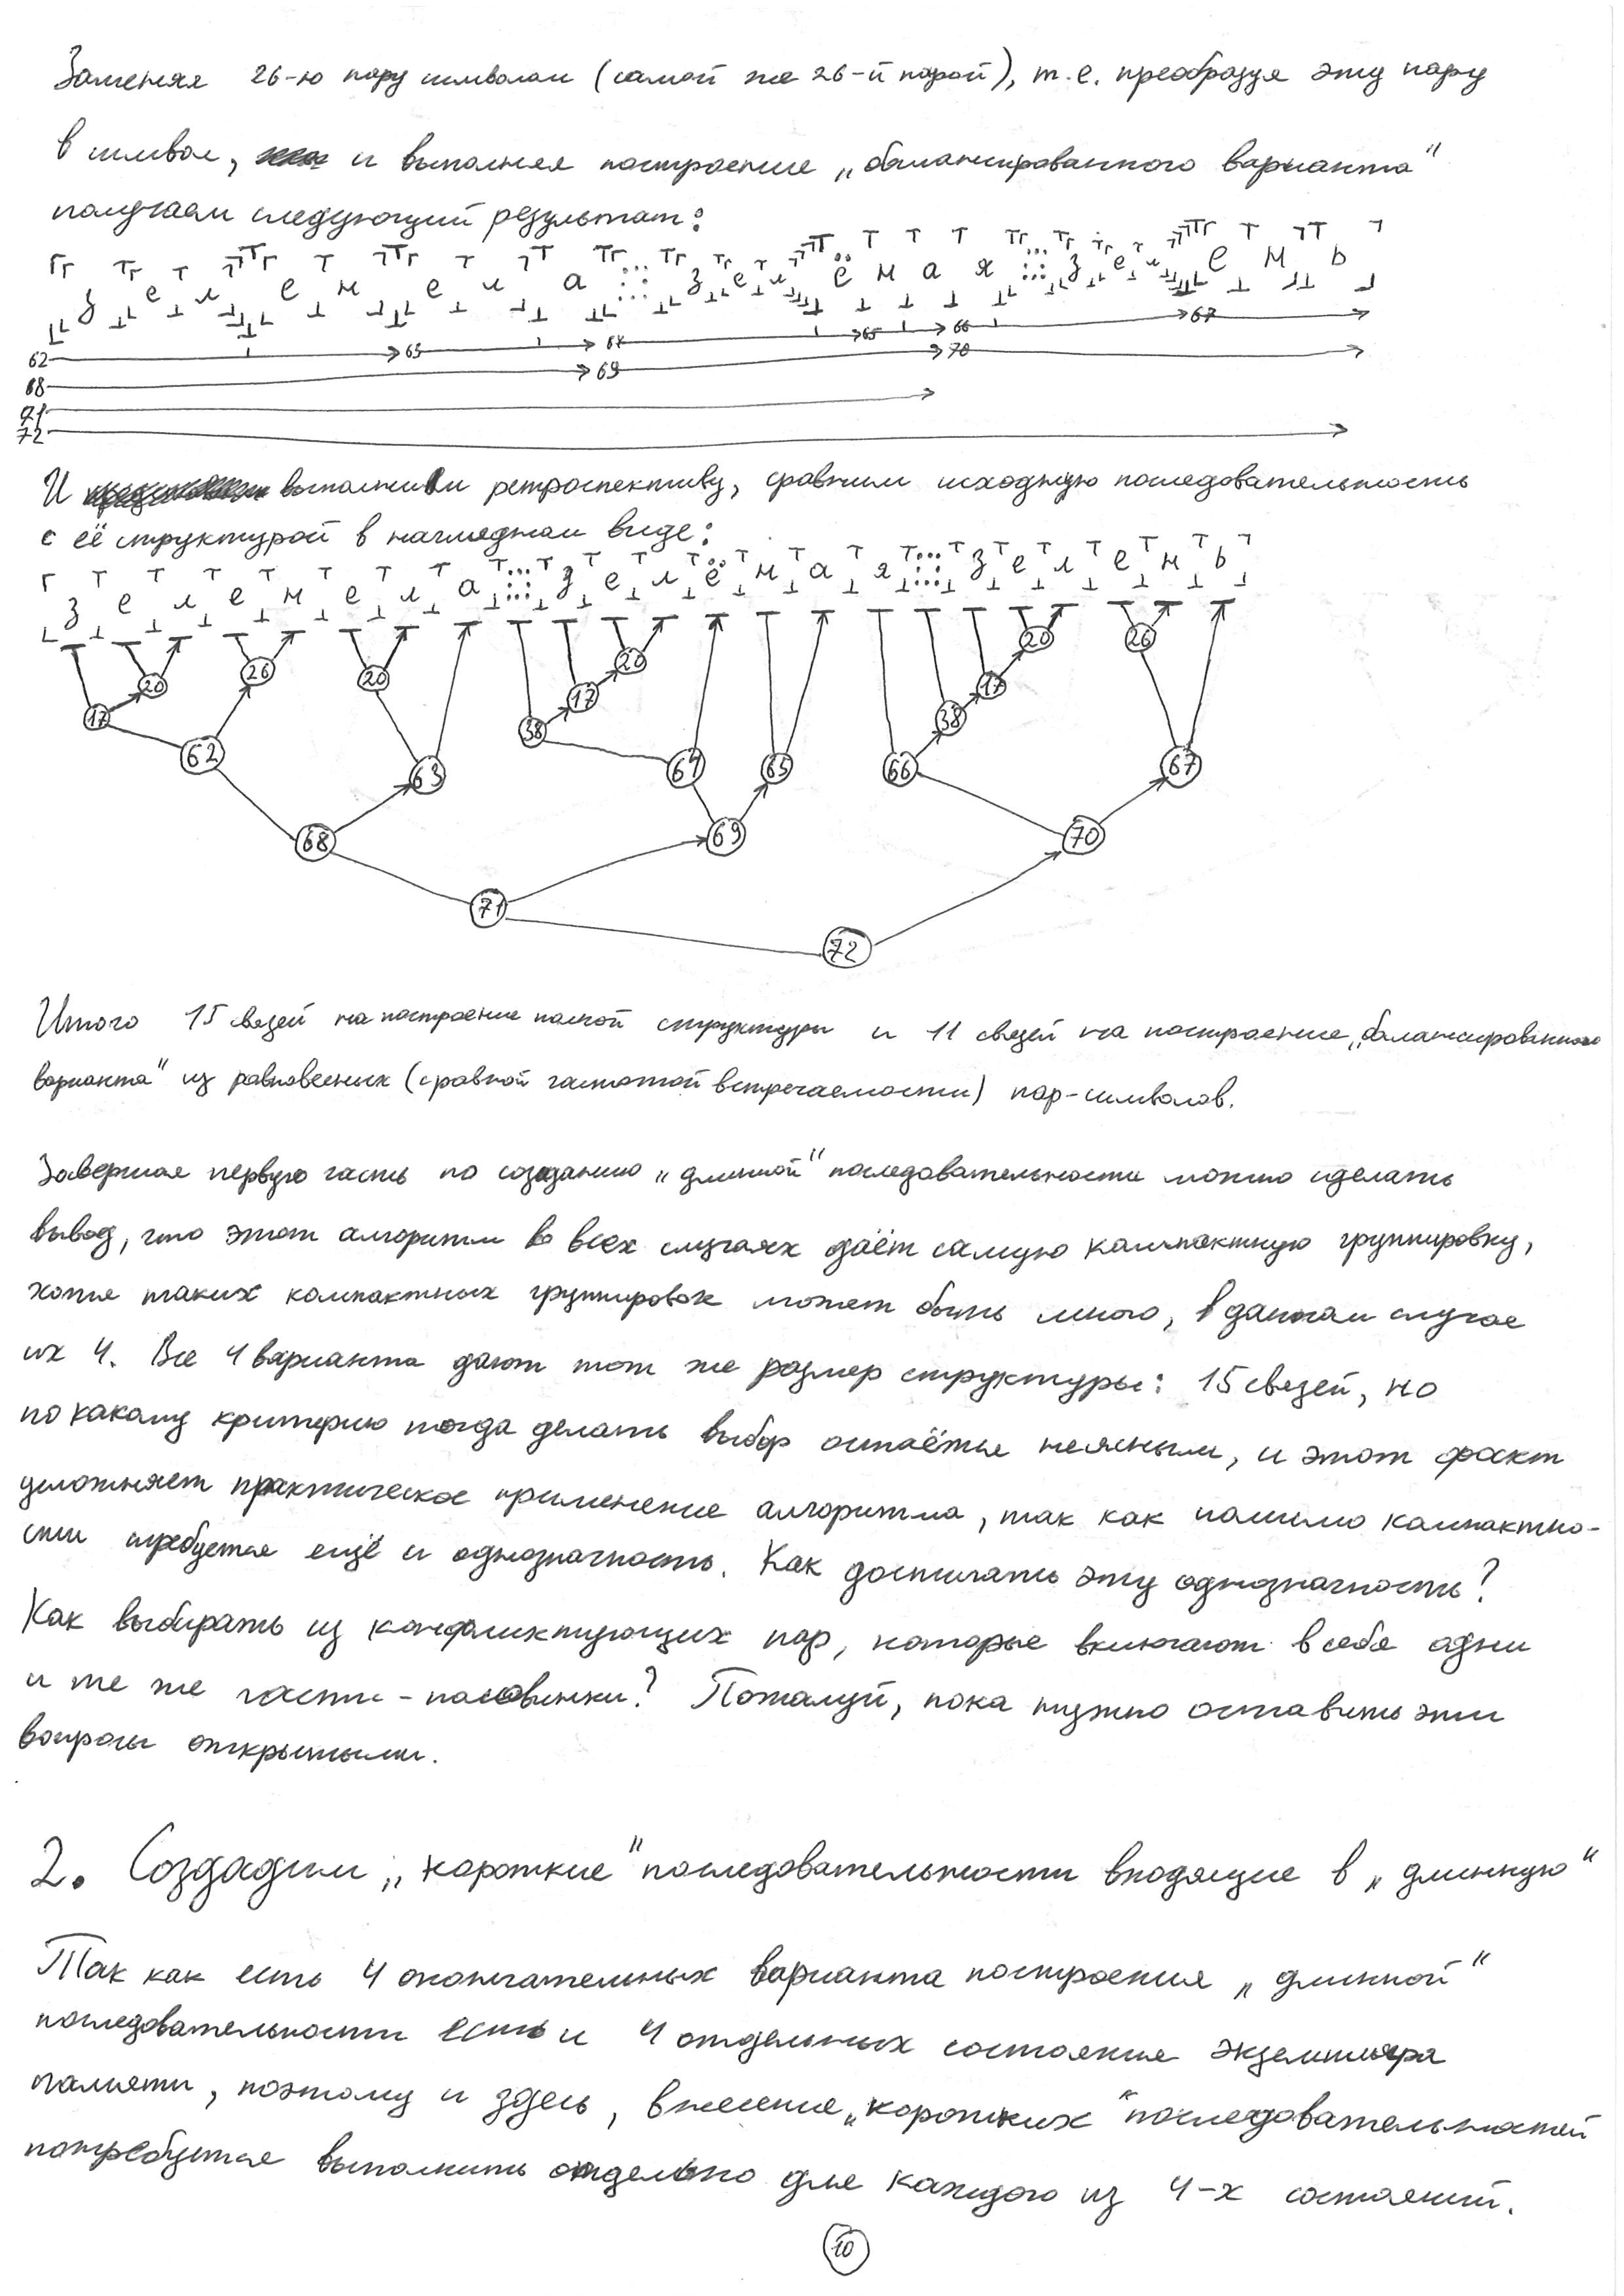 Заменяя 26-ю пару символом (самой же 26-й парой), т.е. преобразуя эту пару
в символ, и выполняя построение „балансированного варианта"
получаем следующий результат:
з е л е н е л а ⋮⋮ з е л ё н а я ⋮⋮ з е л е н ь
65 66 67
62 63 64
68 69 70
71
72
И выполнили ретроспективу, сравним исходную последовательность
с её структурой в наглядном виде:
з е л е н е л а ⋮⋮ з е л ё н а я ⋮⋮ з е л е н ь
20 26 20 20 20 26
17 17 17
38 38
62 63 64 65 66 67
68 69 70
71
72
Итого 15 связей на построение полной структуры и 11 связей на построение „балансированного
варианта" из равновесных (с равной частотой встречаемости) пар-символов.
Завершая первую часть по созданию „длинной" последовательности можно сделать
вывод, что этот алгоритм во всех случаях даёт самую компактную группировку,
хотя таких компактных группировок может быть много, в данном случае
их 4. Все 4 варианта дают тот же размер структуры: 15 связей, но
по какому критерию тогда делать выбор остаётся неясным, и этот факт
усложняет практическое применение алгоритма, так как помимо компактно-
сти требуется ещё и однозначность. Как достигать эту однозначность?
Как выбирать из конфликтующих пар, которые включают в себя одни
и те же части-половинки? Пожалуй, пока нужно оставить эти
вопросы открытыми.
2. Создадим „короткие" последовательности входящие в „длинную"
Так как есть 4 окончательных варианта построения „длинной"
последовательности есть и 4 отдельных состояния экземпляра
памяти, поэтому и здесь, внесение „коротких" последовательностей
потребуется выполнить отдельно для каждого из 4-х состояний.
10